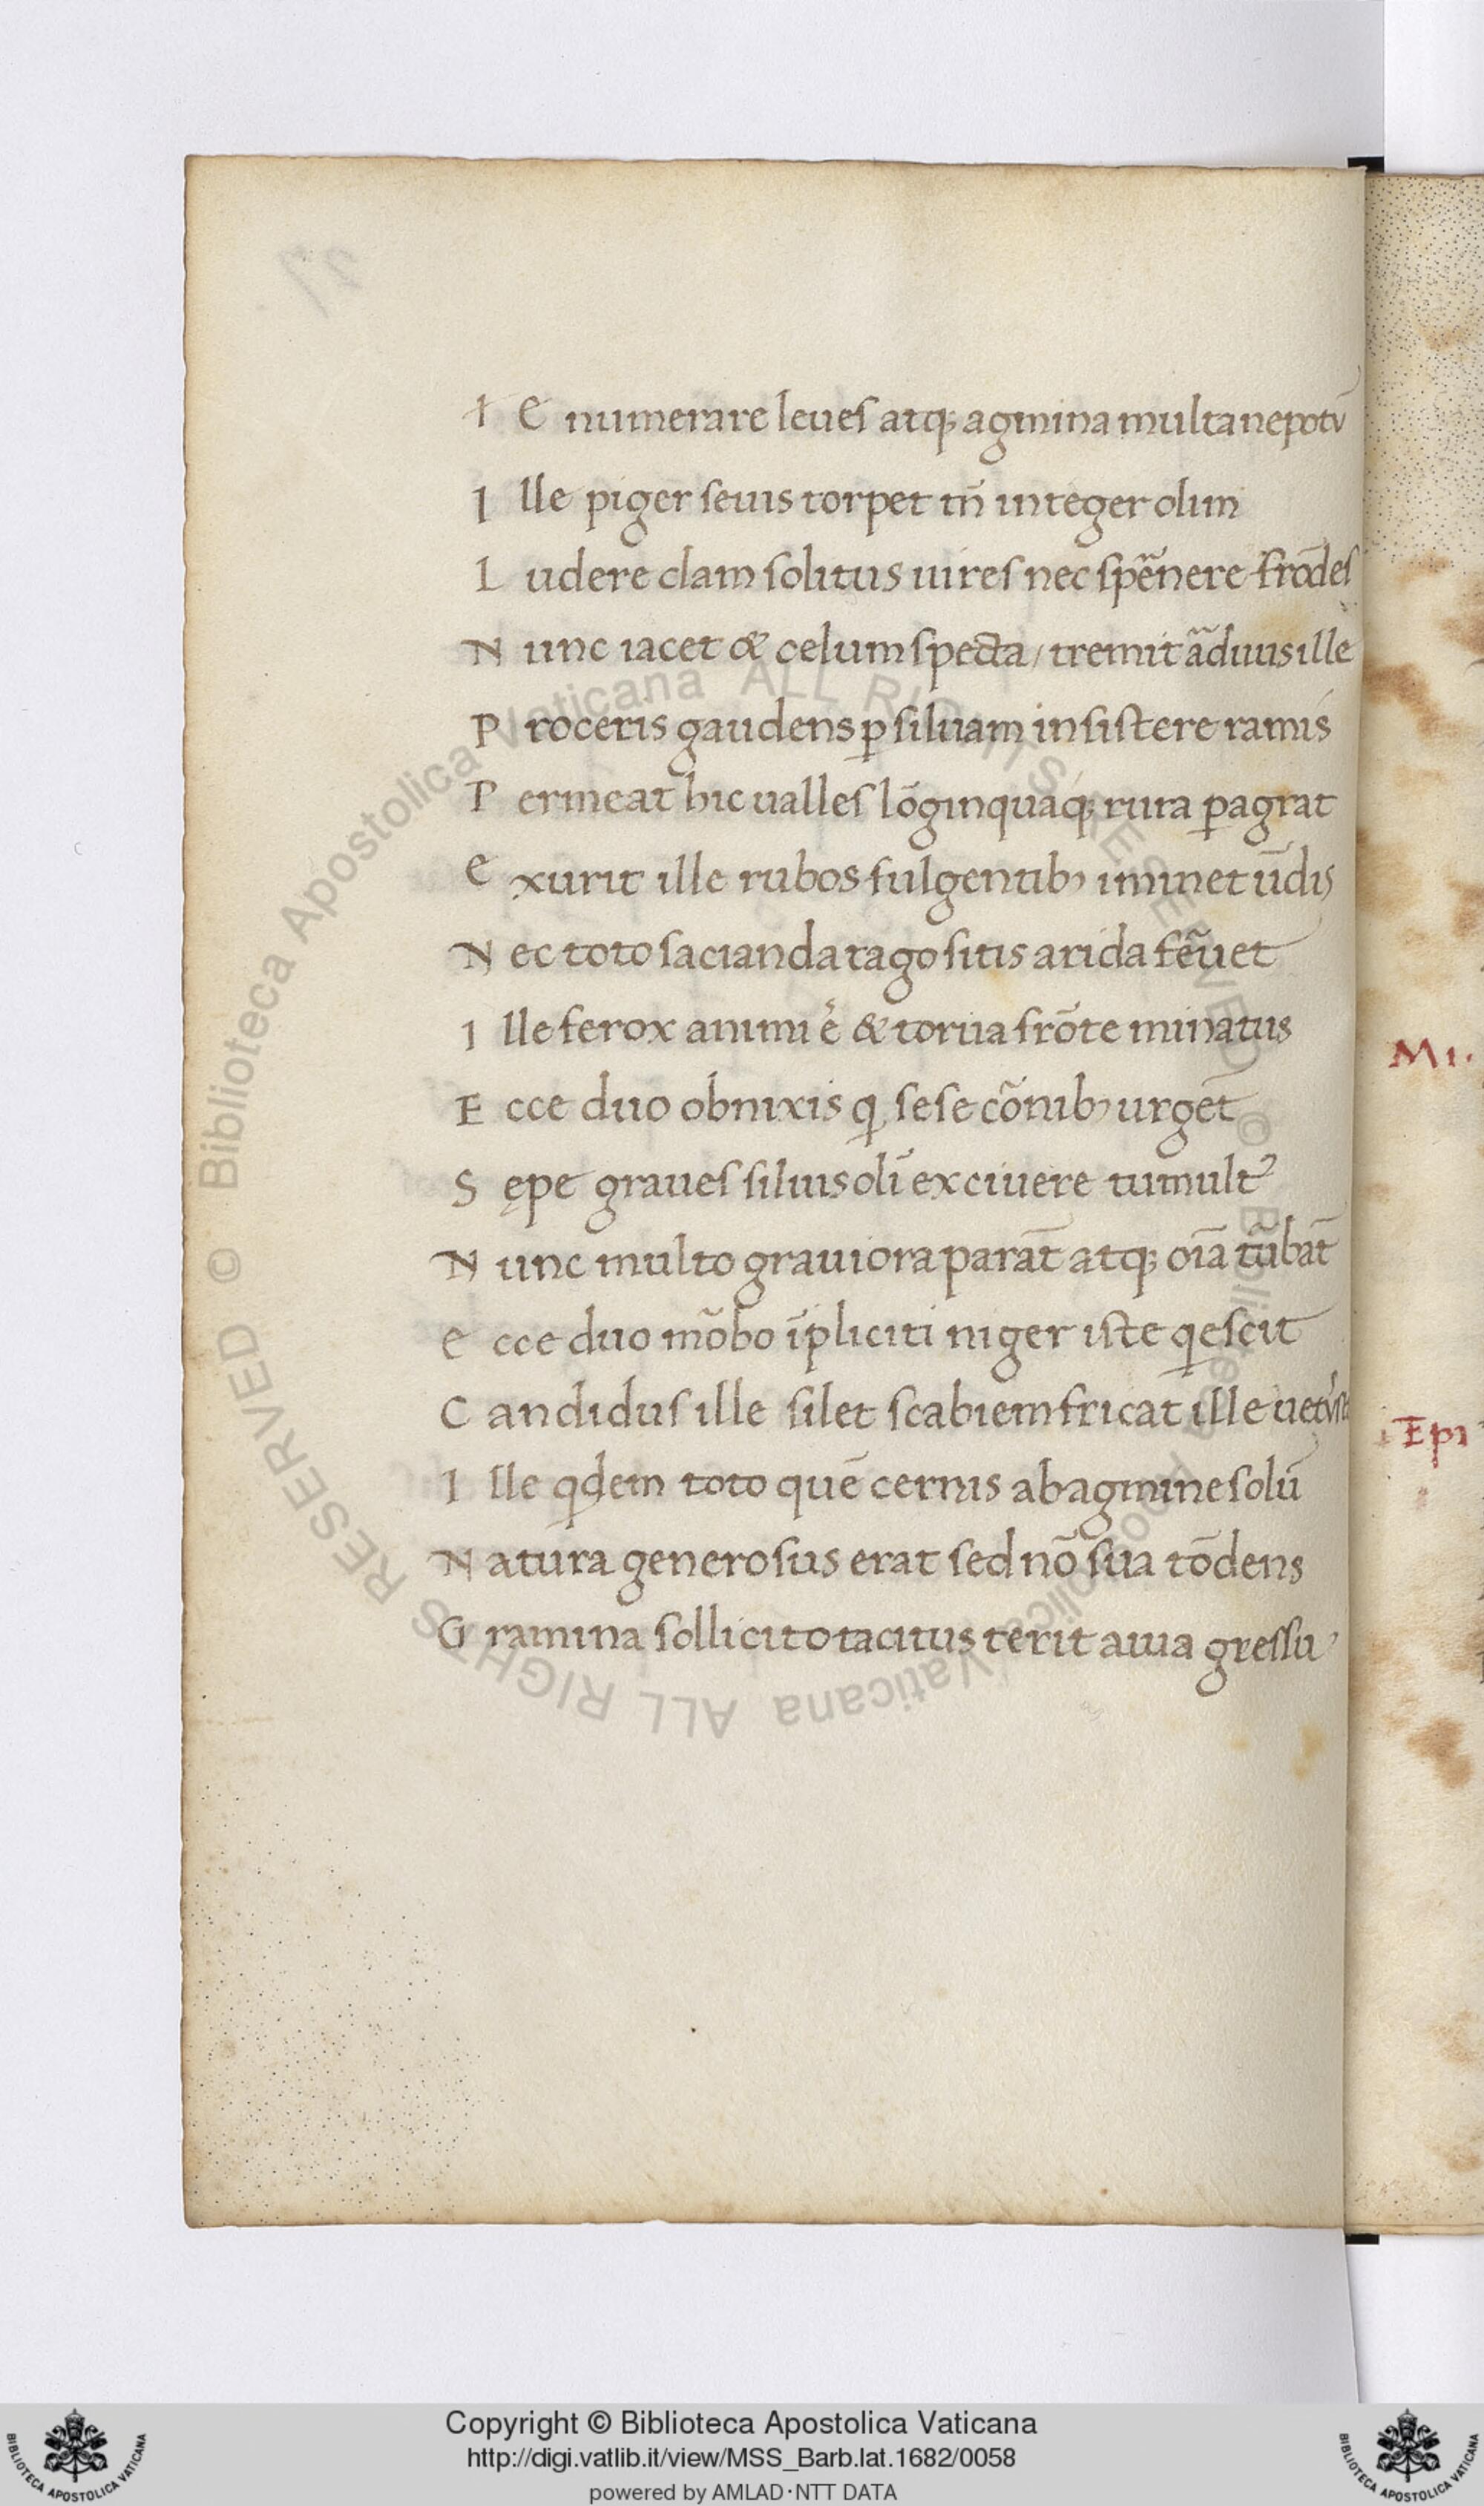 I E numerare leues atq; agmina multa nepotū
I lle piger seuis torpet tn̄ integer olim
L udere clam solitus uires nec spẽnere frōdes
N unc iacet & celum specta/ tremit ãduus ille
P roceris gaudens ꝑ siluam insistere ramis
P ermeat hic ualles lōginquaq; rura ꝑagrat
e xurit ille rubos fulgentibꝫ iminet ūdis
N ec toto sacianda tago sitis arida fẽuet
I lle ferox animi ē & torua frōte minatus
E cce duo obnixis qͥ sese cõnibꝫ urgēt
S ępe graues siluis oli᷑ exciuere tumultꝰ
N unc multo grauiora parāt atq; oīa tũbāt
e cce duo mõbo īpliciti niger iste qͥescit
C andidus ille silet scabiem fricat ille
I lle qͥdem toto quē cernis ab agmine solū
N atura generosus erat sed nō sua tōdens
G ramina sollicito tacitus terit auia gressu
MI.
Epi
© Biblioteca Apostolica Vaticana ALL RIGHTS RESERVED
© Biblioteca Apostolica Vaticana ALL RIGHTS RESERVED
BIBLIOTECA APOSTOLICA VATICANA
Copyright © Biblioteca Apostolica Vaticana
http://digi.vatlib.it/view/MSS_Barb.lat.1682/0058
powered by AMLAD·NTT DATA
BIBLIOTECA APOSTOLICA VATICANA